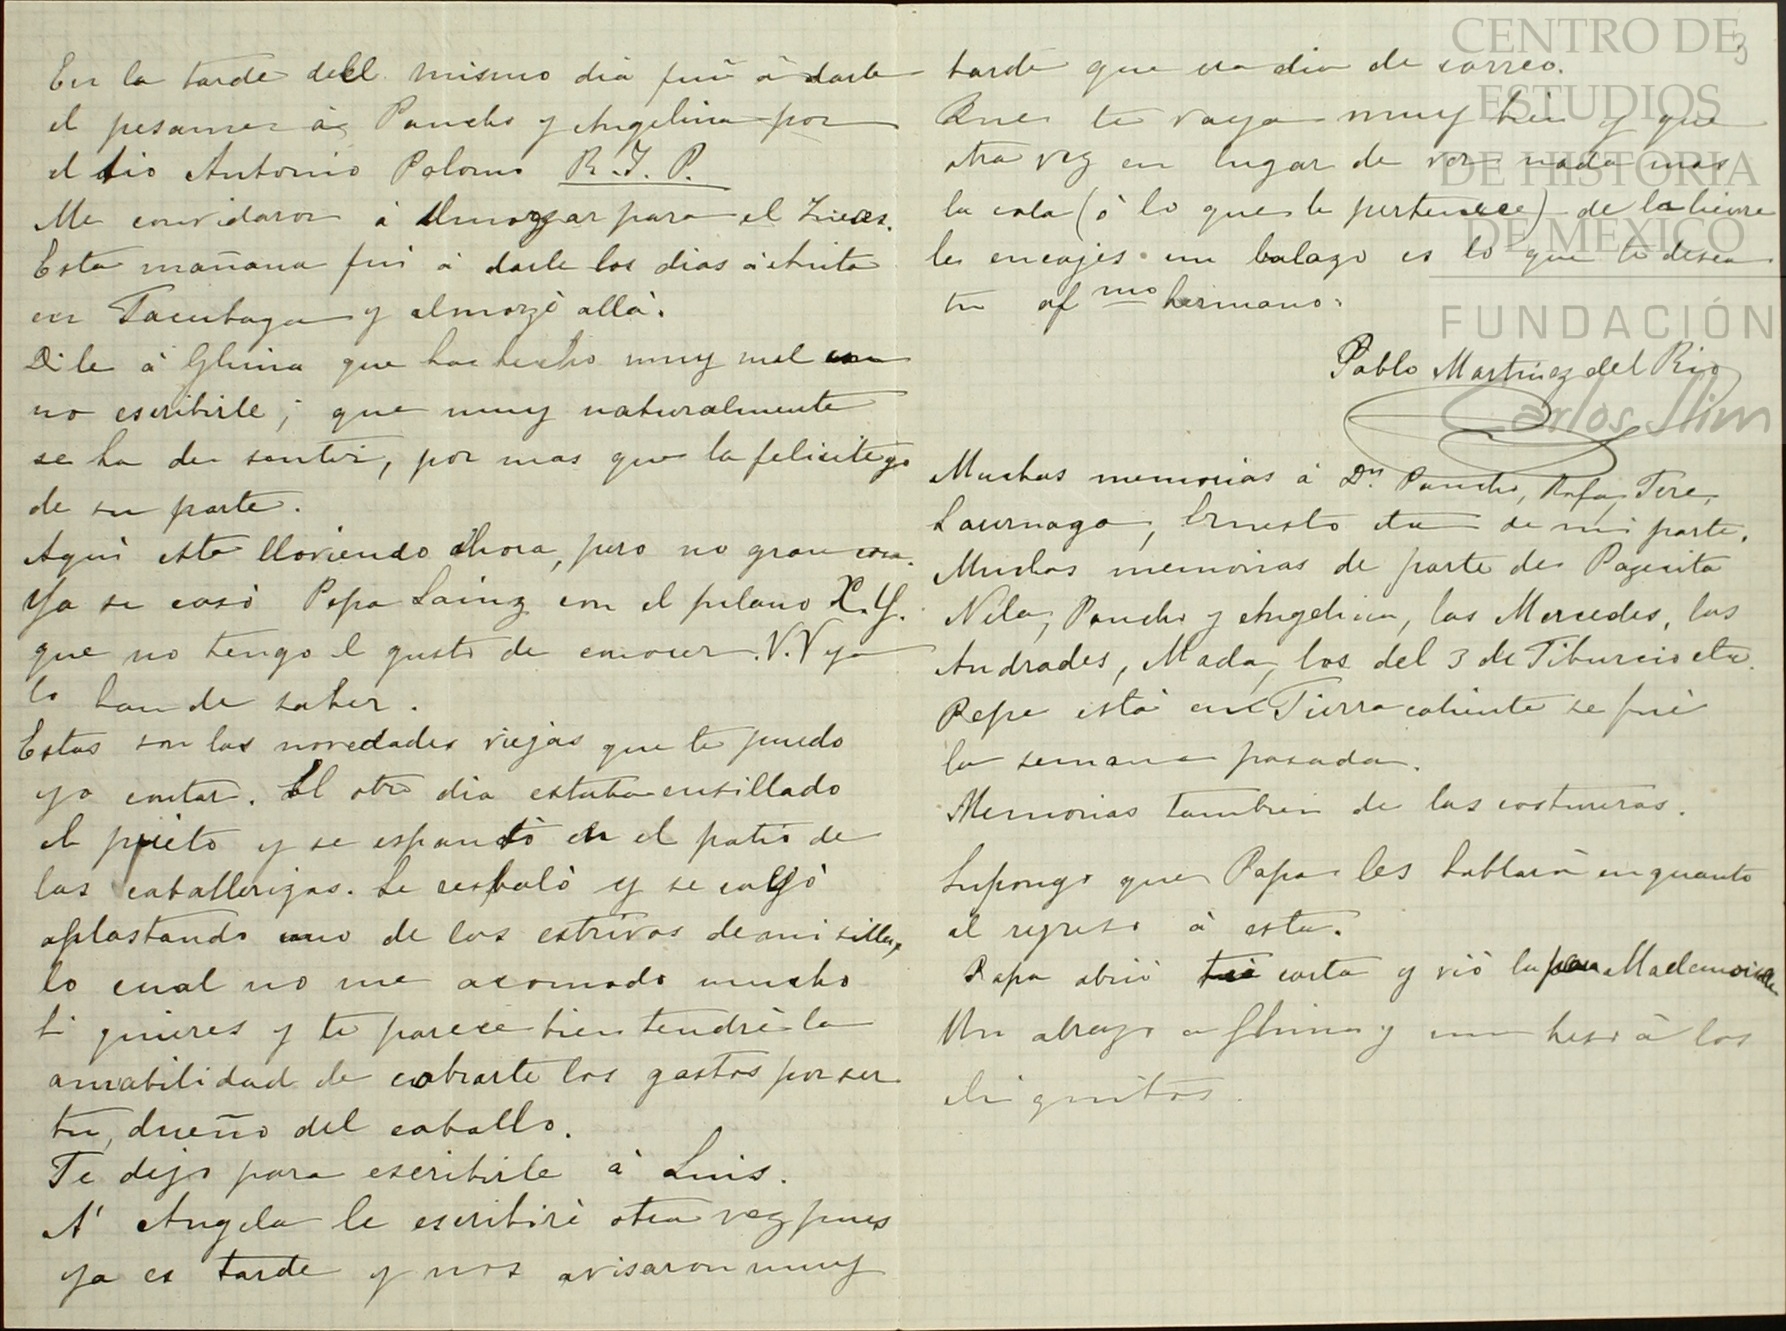 En la tarde del mismo dia fuí á darle
el pesame á Pancho y Angelina por
el tio Antonio Palomo R. I. P.
Me convidaron á almorzar para el
Esta mañana fuí á darle los dias á Anita
en Tacubaya y almorzé allá.
Dile á que ha hecho muy mal en
no escribirle; que muy naturalmente
se ha de sentir, por mas que la felicite yo
de su parte.
Aquí esta lloviendo ahora, pero no gran cosa.
Ya se casó Pepa Sainz con el fulano X. Y.
que no tengo el gusto de conocer. V.V ya
lo han de saber.
Estas son las novedades viejas que te puedo
yo contar. El otro dia estaba ensillado
el prieto y se espantó en el patio de
las caballerizas. Se resbaló y se cayó
aplastando uno de los estrivos de mi silla,
lo cual no me acomodo mucho
Si quieres y te parece bien tendré la
amabilidad de cobrarte los gastos por ser
tu, dueño del caballo.
Te dejo para escribirle á Luis.
A' Angela le escribiré otra vez pues
ya es tarde y nos avisaron muy
3
tarde que era dia de correo.
Que te vaya muy bien y que
otra vez en lugar de ver nada mas
la cola (ó lo que le pertenece) de la liebre
le encajes un balazo es lo que te desea
tu afmo hermano.
Pablo Martínez del Rio
Muchas memorias á Dn. Pancho, Rafa, Tere,
Ernesto etc de mi parte.
Muchas memorias de parte de Pagesita
Nila, Pancho y Angelina, las Mercedes, las
Andrades, Mada, los del 3 de Tiburcio etc.
Pepe está en Tierra caliente se fué
la semana pasada.
Memorias tambien de las costureras.
Supongo que Papa les hablará en quanto
al regreso á esta.
Papa abrió tu carta y vió la para Mademoiselle
Un abrazo a y un beso á los
chiquitos.
CENTRO DE
ESTUDIOS
DE HISTORIA
DE MEXICO
FUNDACIÓN
Carlos Slim